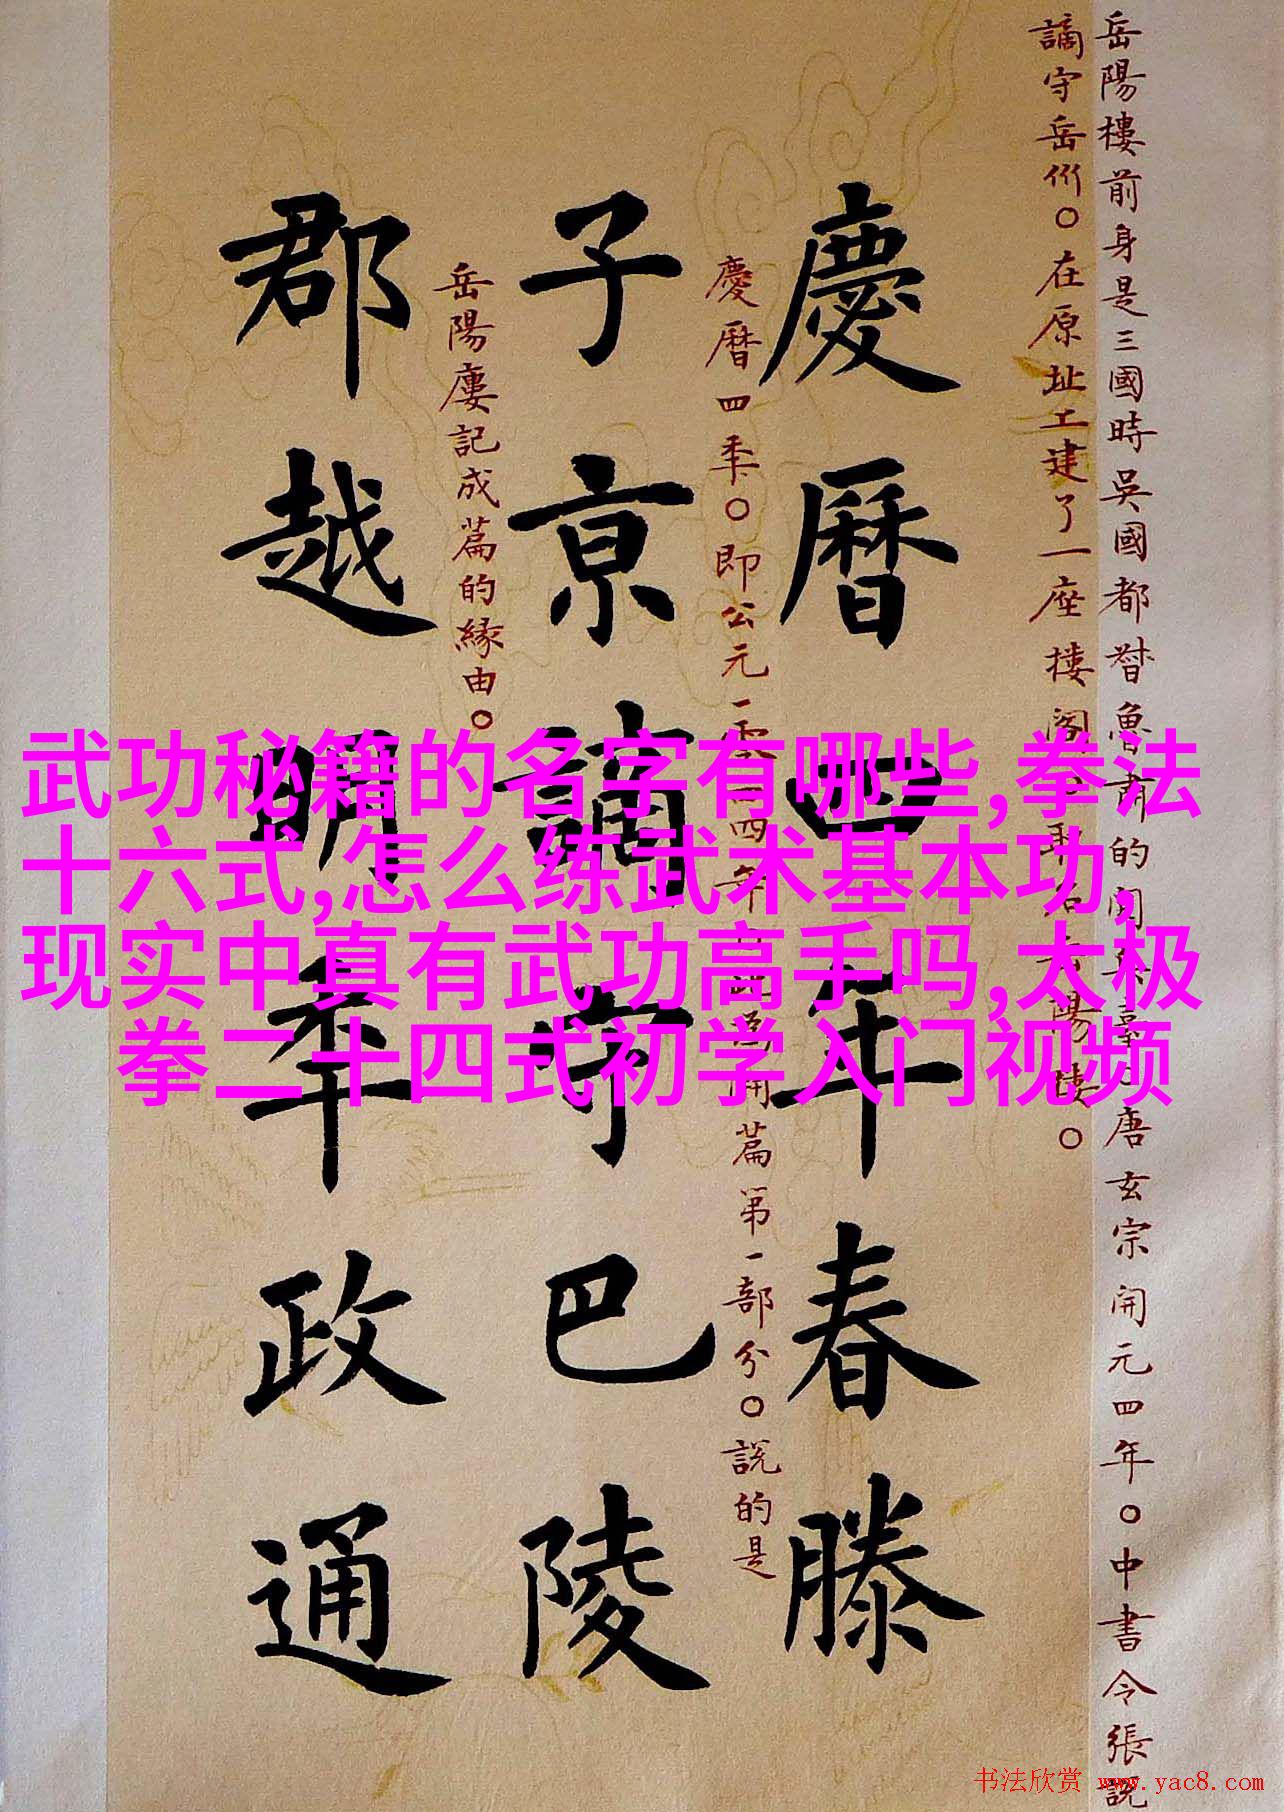 岳陽樓前身是三國時吳國都督魯肅的閱兵臺。唐玄宗開元四年。中書令張説
謫守岳州。在原址工建了一座樓閣。取名岳陽樓。
慶曆四年春滕
慶曆四秊。即公元一零四四年。
開篇第一部分。説的是
子京謫守巴陵
岳陽廔記成篇的緣由。
郡越明秊政通
武功秘籍的名字有哪些,拳法
十六式,怎么练武术基本功,
现实中真有武功高手吗,太极
拳二十四式初学入门视频
书法欣赏 www.yac8.com